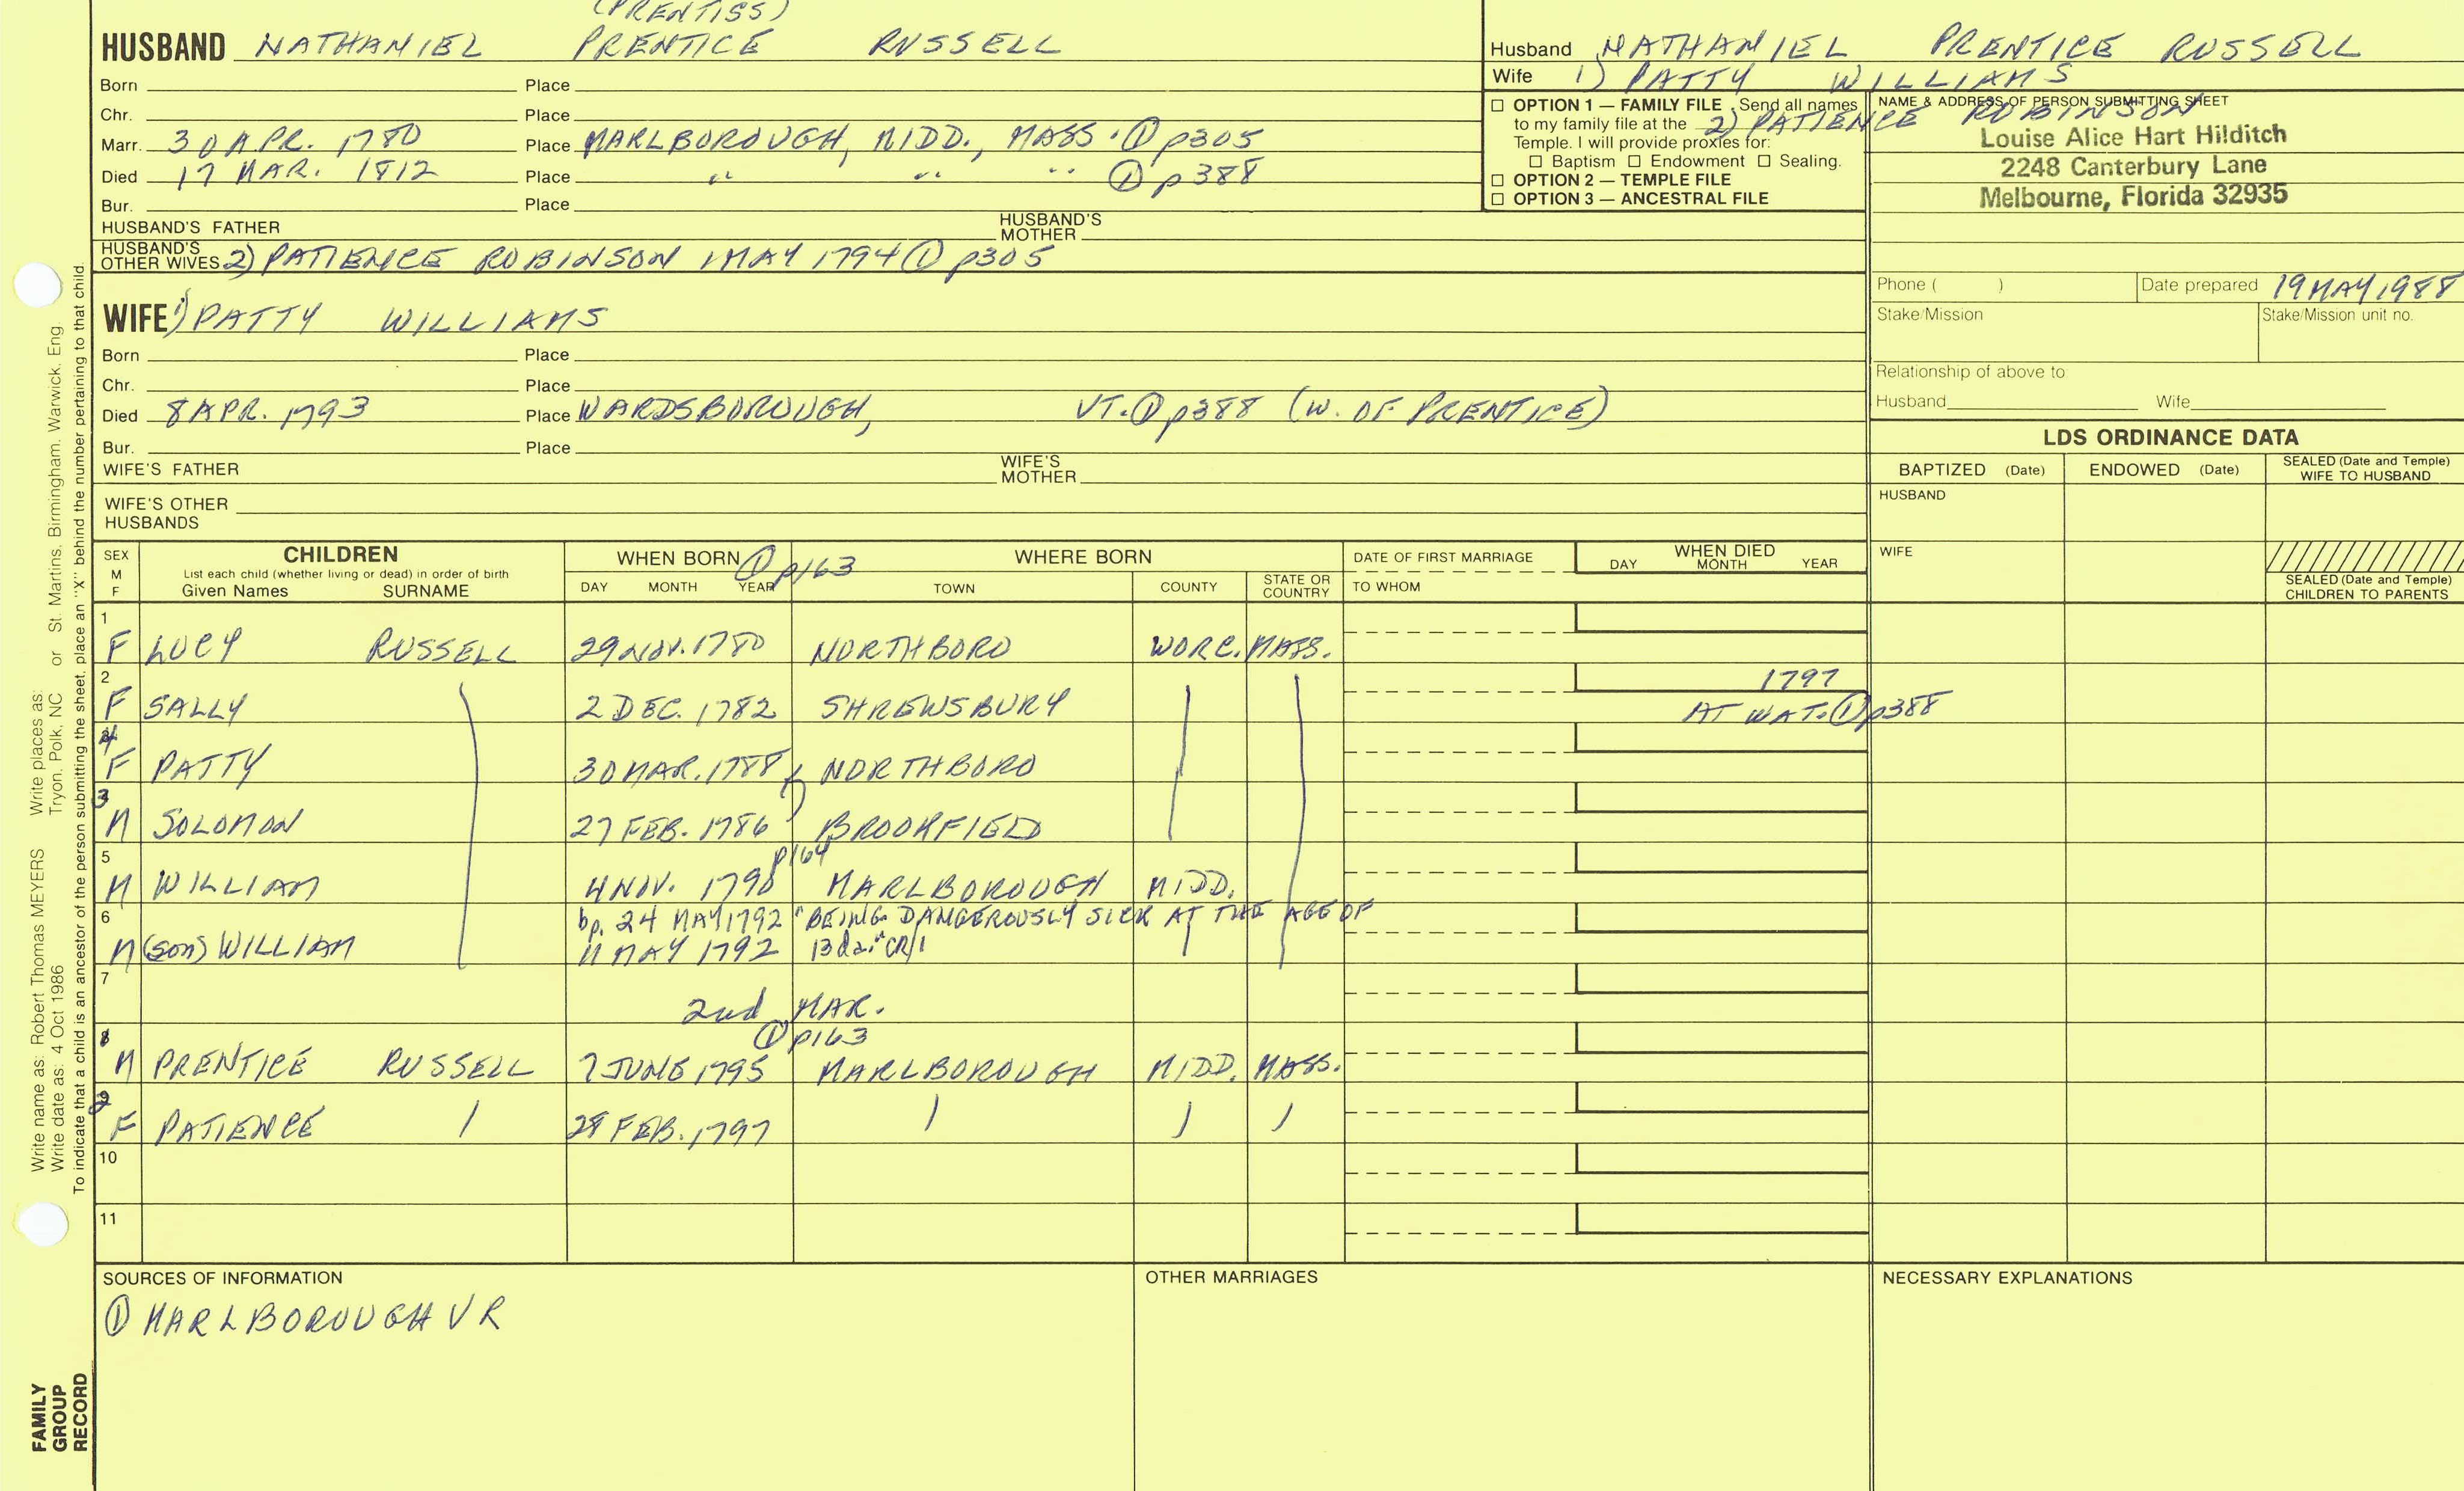 (PRENTISS)
HUSBAND NATHANIEL PRENTICE RUSSELL
Born Place
Chr. Place
Marr. 30 APR. 1780 Place MARLBOROUGH, MIDD., MASS. ① p305
Died 17 MAR. 1812 Place " " " ① p388
Bur. Place
HUSBAND'S FATHER HUSBAND'S MOTHER
HUSBAND'S OTHER WIVES 2) PATIENCE ROBINSON 1 MAY 1794 ① p305
WIFE 1) PATTY WILLIAMS
Born Place
Chr. Place
Died 8 APR. 1793 Place WARDSBOROUGH, VT. ① p388 (W. OF PRENTICE)
Bur. Place
WIFE'S FATHER WIFE'S MOTHER
WIFE'S OTHER
HUSBANDS
Husband NATHANIEL PRENTICE RUSSELL
Wife 1) PATTY WILLIAMS
2) PATIENCE ROBINSON
☐ OPTION 1 — FAMILY FILE Send all names
to my family file at the
Temple. I will provide proxies for:
☐ Baptism ☐ Endowment ☐ Sealing.
☐ OPTION 2 — TEMPLE FILE
☐ OPTION 3 — ANCESTRAL FILE
NAME & ADDRESS OF PERSON SUBMITTING SHEET
Louise Alice Hart Hilditch
2248 Canterbury Lane
Melbourne, Florida 32935
Phone ( ) Date prepared 19 MAY 1988
Stake/Mission Stake/Mission unit no.
Relationship of above to
Husband Wife
LDS ORDINANCE DATA
BAPTIZED (Date) ENDOWED (Date) SEALED (Date and Temple) WIFE TO HUSBAND
HUSBAND
WIFE
SEALED (Date and Temple)
CHILDREN TO PARENTS
SEX M F CHILDREN WHEN BORN ① p163 WHERE BORN DATE OF FIRST MARRIAGE WHEN DIED
List each child (whether living or dead) in order of birth
Given Names SURNAME DAY MONTH YEAR TOWN COUNTY STATE OR COUNTRY TO WHOM DAY MONTH YEAR
1 F LUCY RUSSELL 29 NOV. 1780 NORTHBORO WORC. MASS.
2 F SALLY 2 DEC. 1782 SHREWSBURY 1797
AT WAT. ① p388
4 F PATTY 30 MAR. 1788 NORTHBORO
3 M SOLOMON 27 FEB. 1786 BROOKFIELD
p164
5 M WILLIAM 4 NOV. 1790 MARLBOROUGH MIDD.
6 bp. 24 MAY 1792 "BEING DANGEROUSLY SICK AT THE AGE OF
M (son) WILLIAM 11 MAY 1792 13 da." CR1
7
2nd MAR.
① p163
8 M PRENTICE RUSSELL 7 JUNE 1795 MARLBOROUGH MIDD. MASS.
9 F PATIENCE 28 FEB. 1797
10
11
SOURCES OF INFORMATION OTHER MARRIAGES NECESSARY EXPLANATIONS
① MARLBOROUGH VR
Write name as: Robert Thomas MEYERS Write places as: Tryon, Polk, NC or St. Martins, Birmingham, Warwick, Eng.
Write date as: 4 Oct 1986
To indicate that a child is an ancestor of the person submitting the sheet, place an "X" behind the number pertaining to that child.
FAMILY
GROUP
RECORD